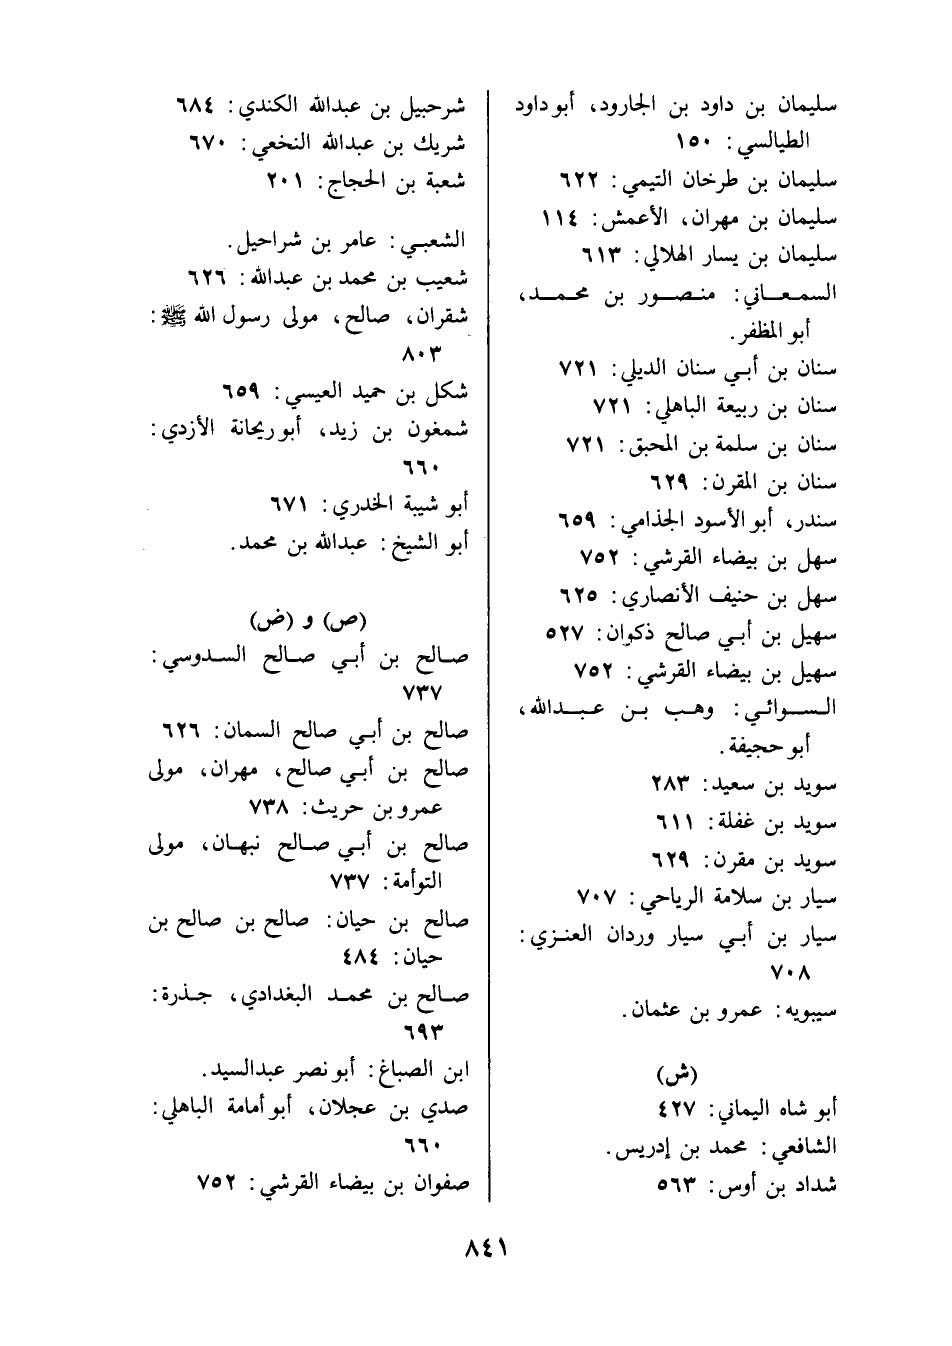 سليمان بن داود بن الجارود، أبو داود
الطيالسي: ١٥٠
سليمان بن طرخان التيمي: ٦٢٢
سليمان بن مهران، الأعمش: ١١٤
سليمان بن يسار الهلالي: ٦١٣
السمعاني: منصور بن محمد،
أبو المظفر.
سنان بن أبي سنان الديلي: ٧٢١
سنان بن ربيعة الباهلي: ٧٢١
سنان بن سلمة بن المحبق: ٧٢١
سنان بن المقرن: ٦٢٩
سندر، أبو الأسود الجذامي: ٦٥٩
سهل بن بيضاء القرشي: ٧٥٢
سهل بن حنيف الأنصاري: ٦٢٥
سهيل بن أبي صالح ذكوان: ٥٢٧
سهيل بن بيضاء القرشي: ٧٥٢
السوائي: وهب بن عبدالله،
أبو حجيفة.
سويد بن سعيد: ٢٨٣
سويد بن غفلة: ٦١١
سويد بن مقرن: ٦٢٩
سيار بن سلامة الرياحي: ٧٠٧
سيار بن أبي سيار وردان العنزي:
٧٠٨
سيبويه: عمرو بن عثمان.
(ش)
أبو شاه اليماني: ٤٢٧
الشافعي: محمد بن إدريس.
شداد بن أوس: ٥٦٣
شرحبيل بن عبدالله الكندي: ٦٨٤
شريك بن عبدالله النخعي: ٦٧٠
شعبة بن الحجاج: ٢٠١
الشعبي: عامر بن شراحيل.
شعيب بن محمد بن عبدالله: ٦٢٦
شقران، صالح، مولى رسول الله ﷺ:
٨٠٣
شكل بن حميد العيسي: ٦٥٩
شمغون بن زيد، أبو ريحانة الأزدي:
٦٦٠
أبو شيبة الخدري: ٦٧١
أبو الشيخ: عبدالله بن محمد.
(ص) و (ض)
صالح بن أبي صالح السدوسي:
٧٣٧
صالح بن أبي صالح السمان: ٦٢٦
صالح بن أبي صالح، مهران، مولى
عمرو بن حريث: ٧٣٨
صالح بن أبي صالح نبهان، مولى
التوأمة: ٧٣٧
صالح بن حيان: صالح بن صالح بن
حيان: ٤٨٤
صالح بن محمد البغدادي، جذرة:
٦٩٣
ابن الصباغ: أبو نصر عبدالسيد.
صدي بن عجلان، أبو أمامة الباهلي:
٦٦٠
صفوان بن بيضاء القرشي: ٧٥٢
٨٤١